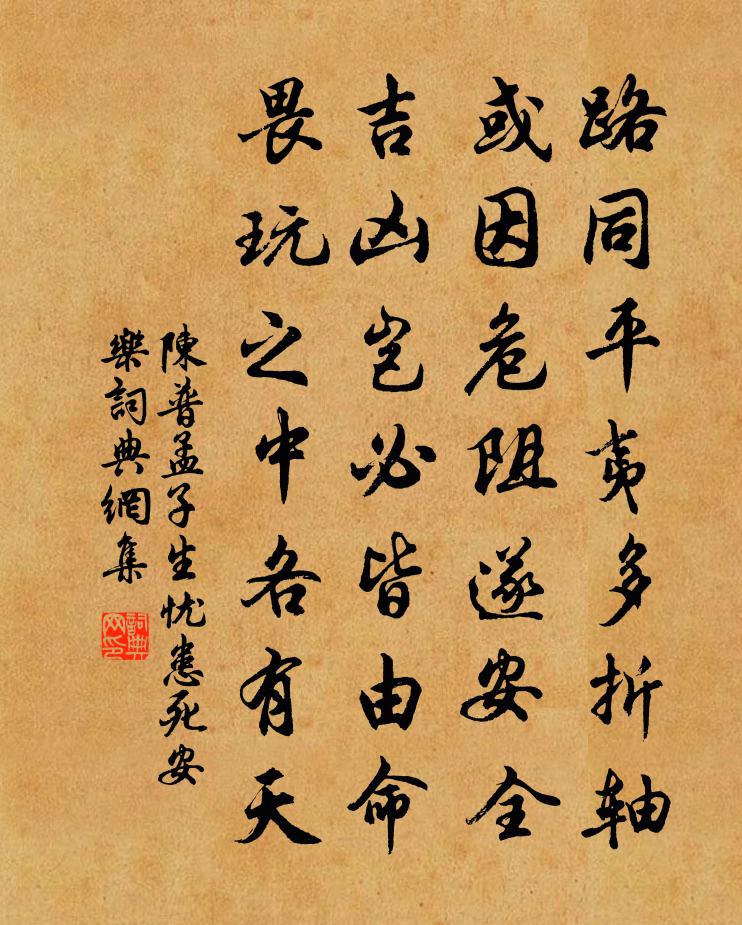 路同平夷多折轴
或因危阻遂安全
吉凶岂必皆由命
畏玩之中各有天
陳普孟子生忧患死安
樂詞典網集
詞典
网印